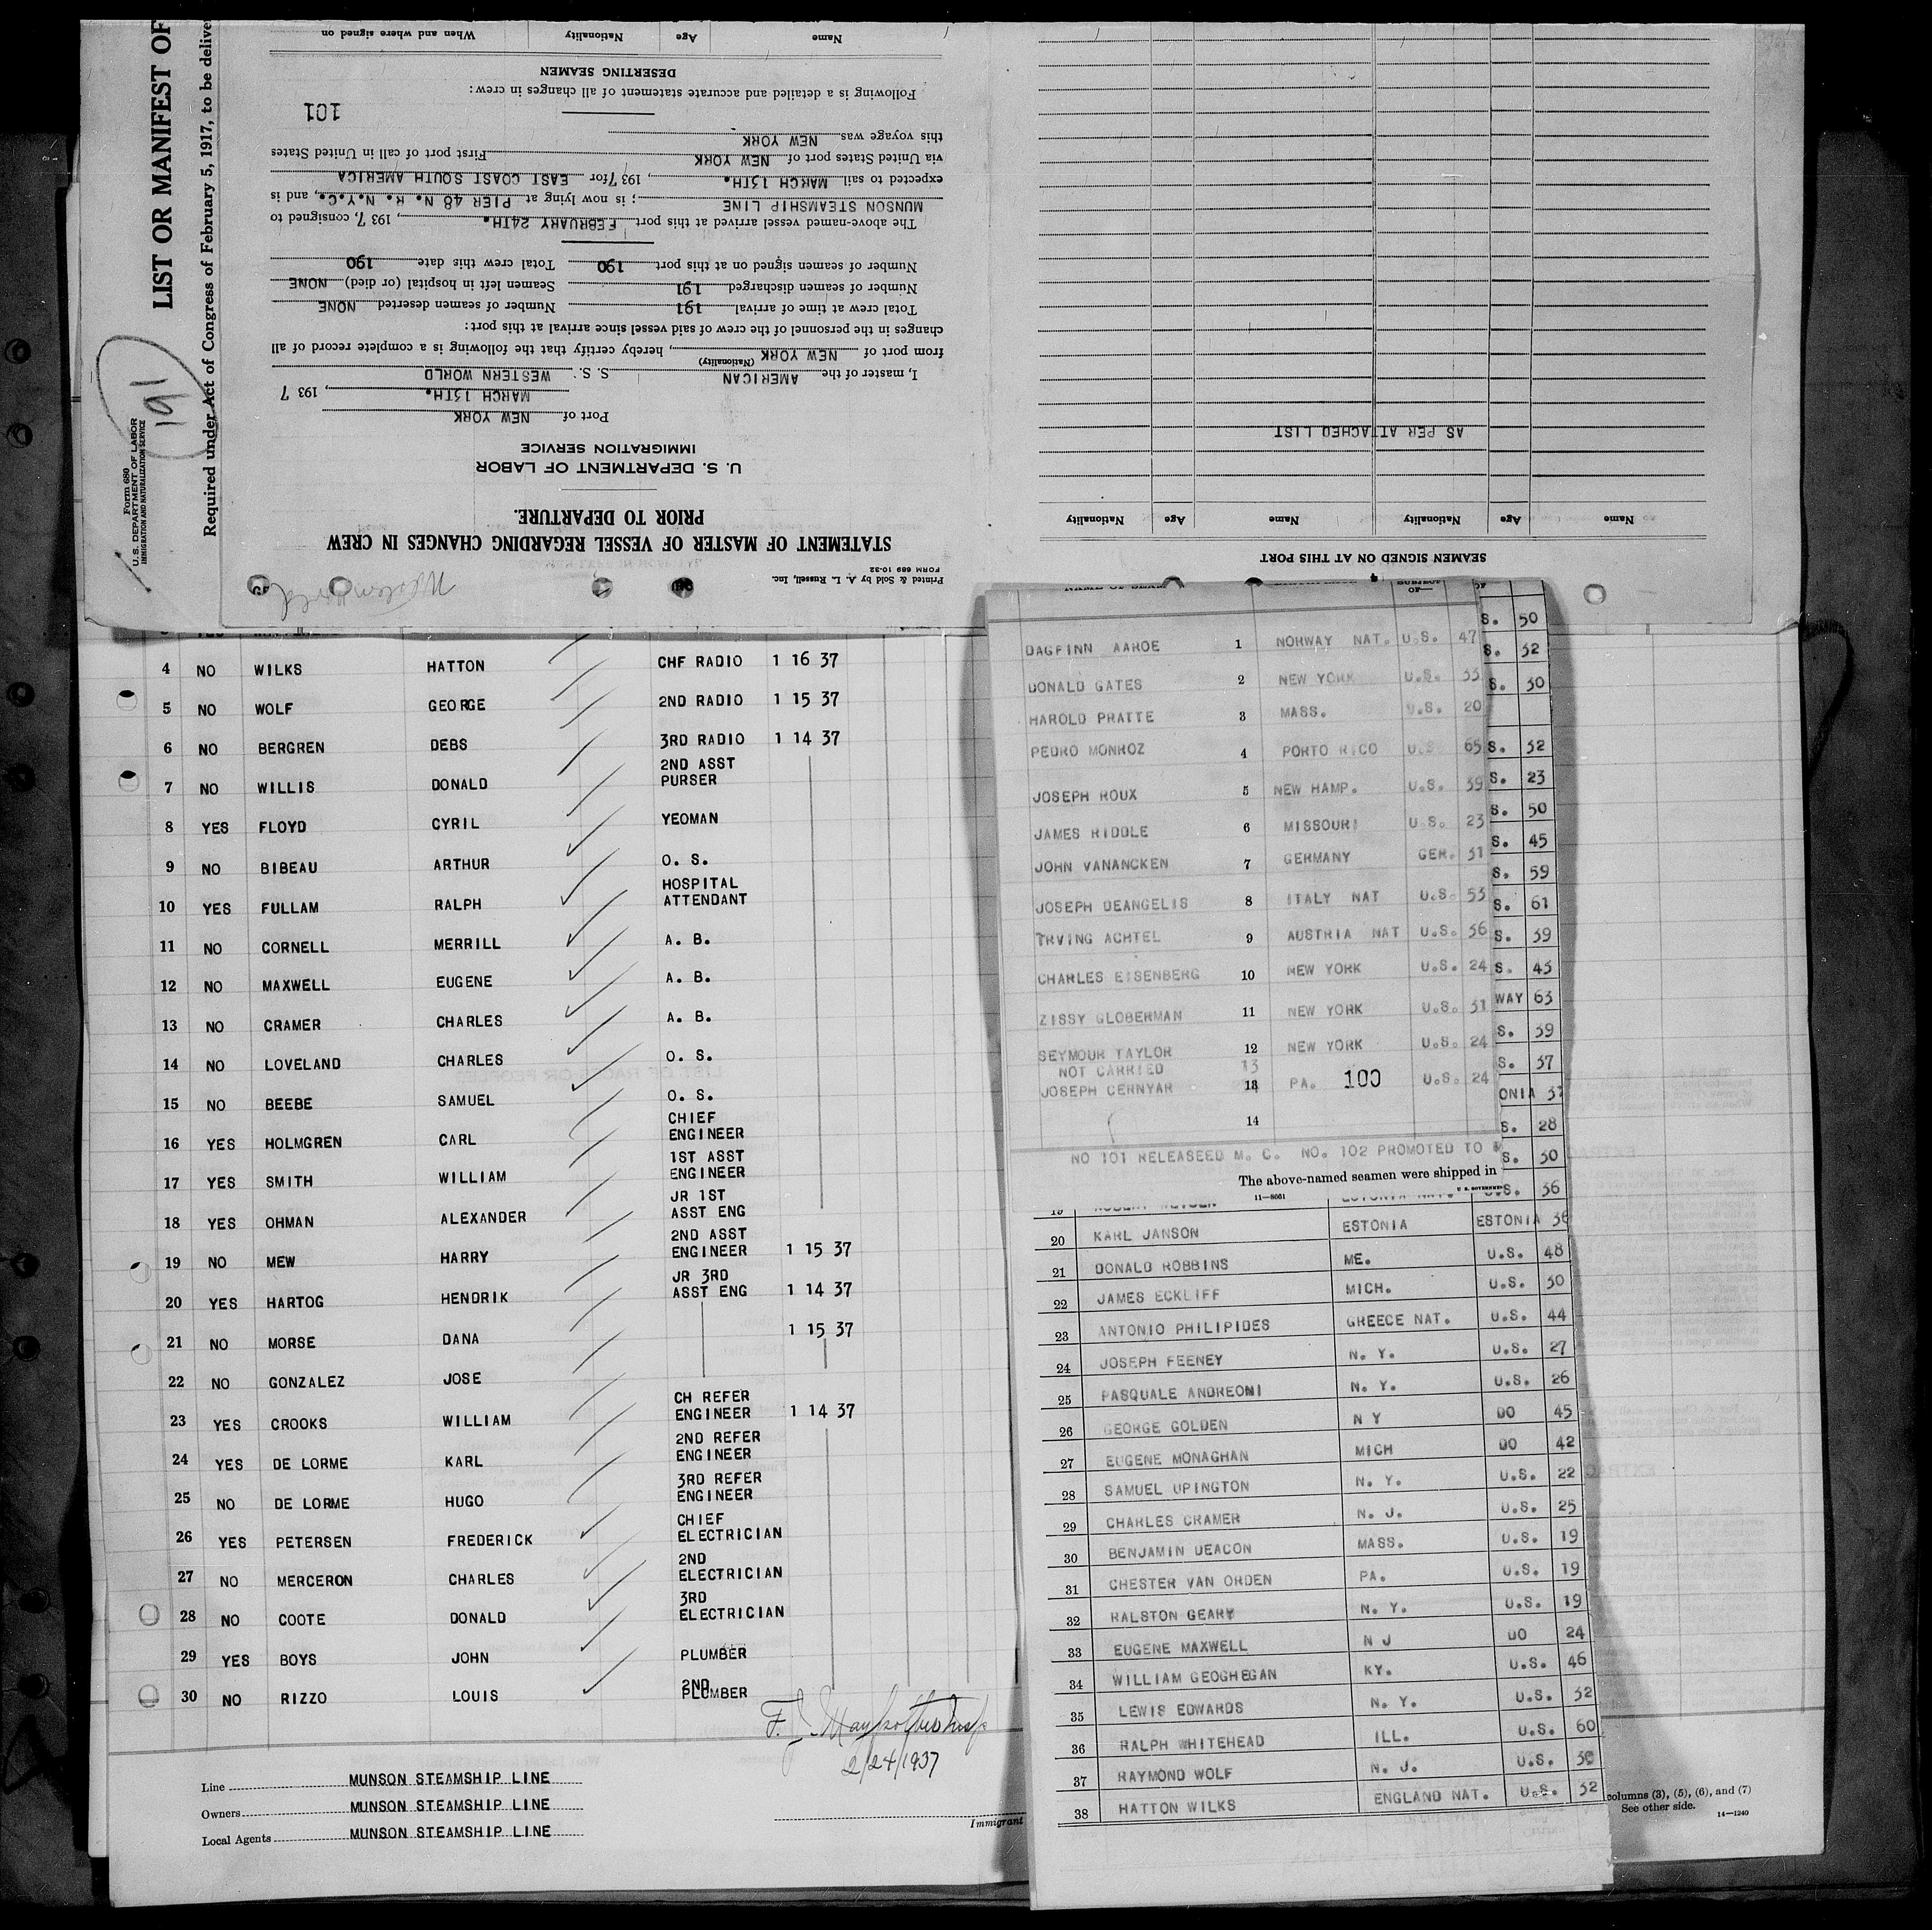 Form 689
U. S. DEPARTMENT OF LABOR
IMMIGRATION AND NATURALIZATION SERVICE
191
LIST OR MANIFEST OF
Required under Act of Congress of February 5, 1917, to be delive
Printed & Sold by A. L. Russell, Inc.
FORM 689 10-32
STATEMENT OF MASTER OF VESSEL REGARDING CHANGES IN CREW
PRIOR TO DEPARTURE.
U. S. DEPARTMENT OF LABOR
IMMIGRATION SERVICE
Port of NEW YORK
MARCH 13TH. , 1937
I, master of the AMERICAN S. S. WESTERN WORLD
(Nationality)
from port of NEW YORK , hereby certify that the following is a complete record of all
changes in the personnel of the crew of said vessel since arrival at this port:
Total crew at time of arrival 191 Number of seamen deserted NONE
Number of seamen discharged 191 Seamen left in hospital (or died) NONE
Number of seamen signed on at this port 190 Total crew this date 190
The above-named vessel arrived at this port FEBRUARY 24TH. , 1937, consigned to
MUNSON STEAMSHIP LINE ; is now lying at PIER 48 N. R. N.Y.C. , and is
expected to sail MARCH 13TH. , 1937 for EAST COAST SOUTH AMERICA
via United States port of NEW YORK First port of call in United States
this voyage was NEW YORK
101
Following is a detailed and accurate statement of all changes in crew:
DESERTING SEAMEN
Name Age Nationality When and where signed on
SEAMEN SIGNED ON AT THIS PORT
Name Age Nationality Name Age Nationality
AS PER ATTACHED LIST
4 NO WILKS HATTON CHF RADIO 1 16 37
5 NO WOLF GEORGE 2ND RADIO 1 15 37
6 NO BERGREN DEBS 3RD RADIO 1 14 37
7 NO WILLIS DONALD 2ND ASST PURSER
8 YES FLOYD CYRIL YEOMAN
9 NO BIBEAU ARTHUR O. S.
10 YES FULLAM RALPH HOSPITAL ATTENDANT
11 NO CORNELL MERRILL A. B.
12 NO MAXWELL EUGENE A. B.
13 NO CRAMER CHARLES A. B.
14 NO LOVELAND CHARLES O. S.
15 NO BEEBE SAMUEL O. S.
16 YES HOLMGREN CARL CHIEF ENGINEER
17 YES SMITH WILLIAM 1ST ASST ENGINEER
18 YES OHMAN ALEXANDER JR 1ST ASST ENG
19 NO MEW HARRY 2ND ASST ENGINEER 1 15 37
20 YES HARTOG HENDRIK JR 3RD ASST ENG 1 14 37
21 NO MORSE DANA 1 15 37
22 NO GONZALEZ JOSE
23 YES CROOKS WILLIAM CH REFER ENGINEER 1 14 37
24 YES DE LORME KARL 2ND REFER ENGINEER
25 NO DE LORME HUGO 3RD REFER ENGINEER
26 YES PETERSEN FREDERICK CHIEF ELECTRICIAN
27 NO MERCERON CHARLES 2ND ELECTRICIAN
28 NO COOTE DONALD 3RD ELECTRICIAN
29 YES BOYS JOHN PLUMBER
30 NO RIZZO LOUIS 2ND PLUMBER
2/24/1937
Line MUNSON STEAMSHIP LINE
Owners MUNSON STEAMSHIP LINE
Local Agents MUNSON STEAMSHIP LINE
Immigrant
DAGFINN AAROE 1 NORWAY NAT. U.S. 47
DONALD GATES 2 NEW YORK U.S. 33
HAROLD PRATTE 3 MASS. U.S. 20
PEDRO MONROZ 4 PORTO RICO U.S. 65
JOSEPH ROUX 5 NEW HAMP. U.S. 39
JAMES RIDDLE 6 MISSOURI U.S. 23
JOHN VANANCKEN 7 GERMANY GER. 31
JOSEPH DEANGELIS 8 ITALY NAT U.S. 53
IRVING ACHTEL 9 AUSTRIA NAT U.S. 36
CHARLES EISENBERG 10 NEW YORK U.S. 24
ZISSY GLOBERMAN 11 NEW YORK U.S. 31
SEYMOUR TAYLOR 12 NEW YORK U.S. 24
NOT CARRIED 13
JOSEPH CERNYAR 13 PA. 100 U.S. 24
14
NO 101 RELEASEED M. C. NO. 102 PROMOTED TO
The above-named seamen were shipped in
11—8661
S. 50
S. 32
S. 30
S. 32
S. 23
S. 50
S. 45
S. 59
S. 61
S. 39
S. 43
WAY 63
S. 39
S. 37
ONIA 37
S. 28
S. 30
S. 36
20 KARL JANSON ESTONIA ESTONIA 36
21 DONALD ROBBINS ME. U.S. 48
22 JAMES ECKLIFF MICH. U.S. 30
23 ANTONIO PHILIPIDES GREECE NAT. U.S. 44
24 JOSEPH FEENEY N. Y. U.S. 27
25 PASQUALE ANDREOMI N. Y. U.S. 26
26 GEORGE GOLDEN N Y DO 45
27 EUGENE MONAGHAN MICH DO 42
28 SAMUEL UPINGTON N. Y. U.S. 22
29 CHARLES CRAMER N. J. U.S. 25
30 BENJAMIN DEACON MASS. U.S. 19
31 CHESTER VAN ORDEN PA. U.S. 19
32 RALSTON GEARY N. Y. U.S. 19
33 EUGENE MAXWELL N J DO 24
34 WILLIAM GEOGHEGAN KY. U.S. 46
35 LEWIS EDWARDS N. Y. U.S. 32
36 RALPH WHITEHEAD ILL. U.S. 60
37 RAYMOND WOLF N. J. U.S.
38 HATTON WILKS ENGLAND NAT. U.S. 32
columns (3), (5), (6), and (7)
See other side.
14—1240